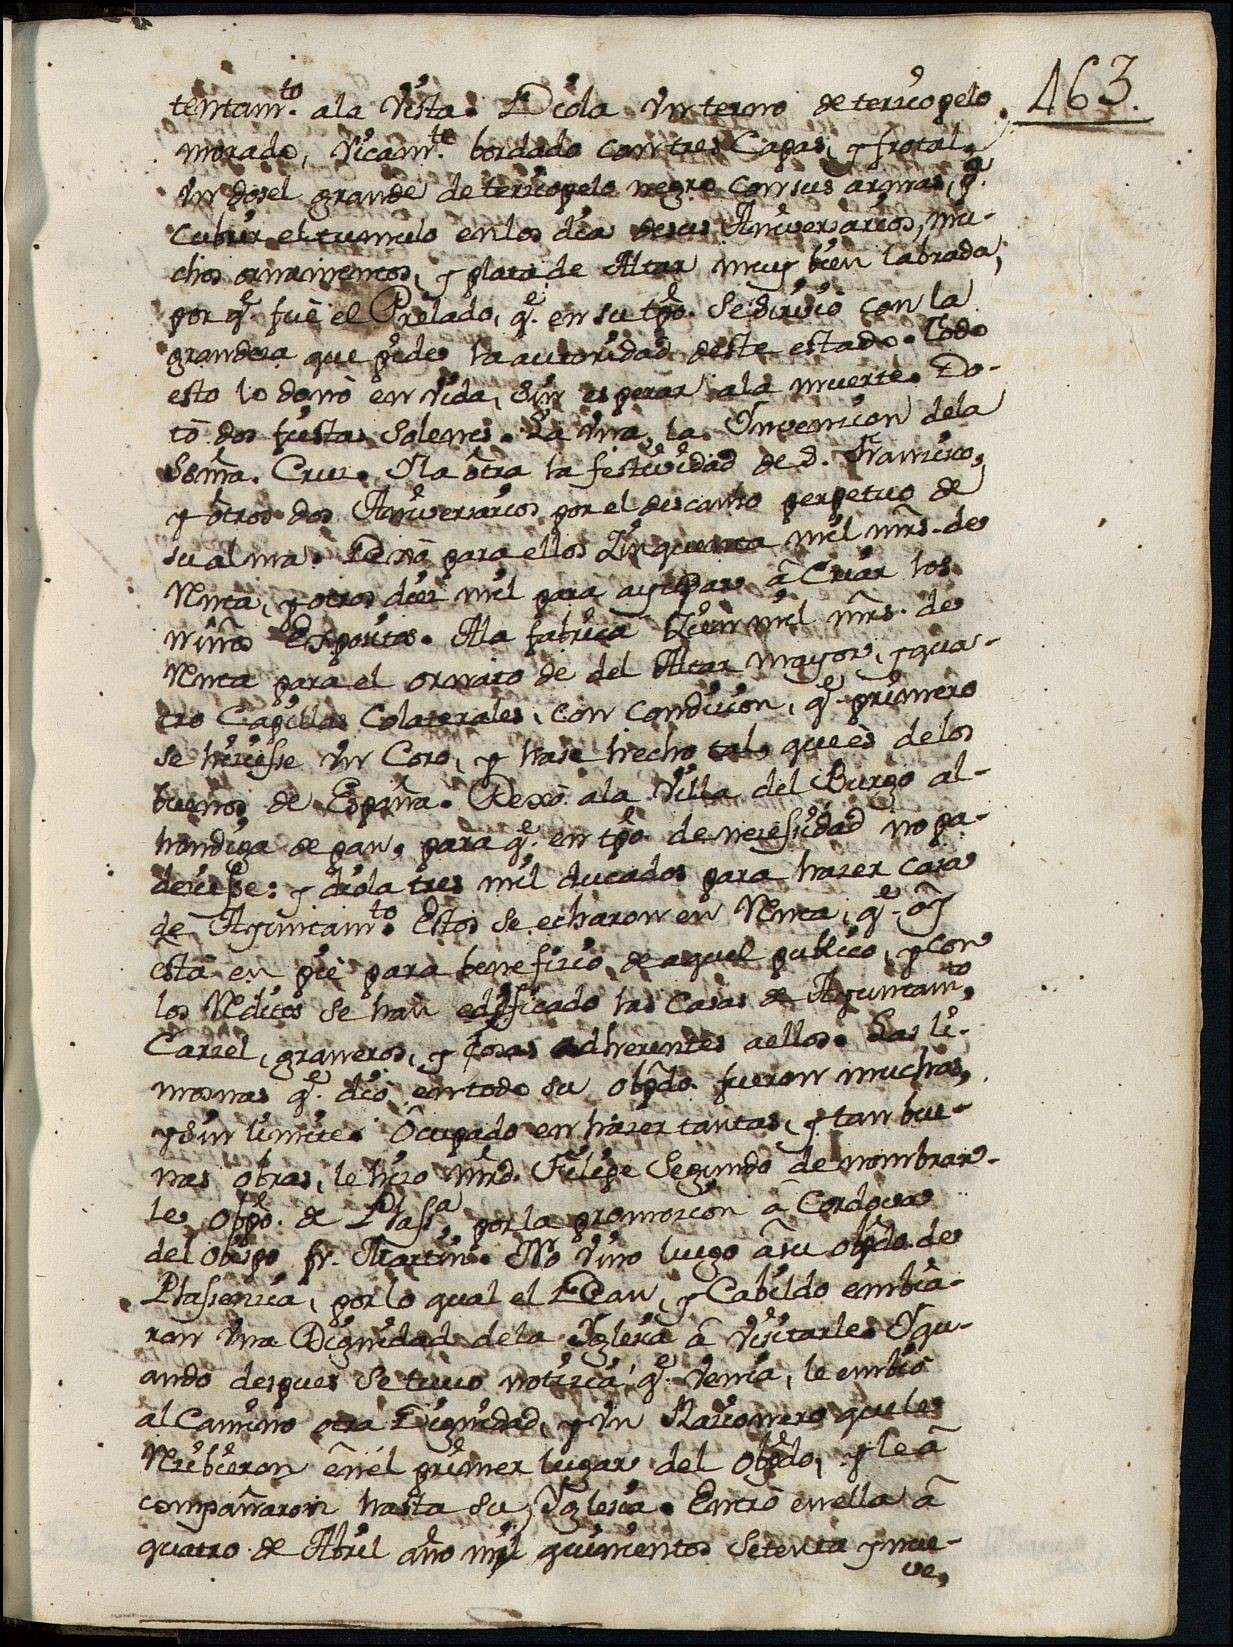 463.
tentam.to a la vista. Diola vn terno de terciopelo
morado, ricam.te bordado con tres Capas, y frotal,
vn dosel grande de terciopelo negro con sus armas, p.a
cubrir el tumulo en los dia de sus Aniversarios, mu-
chos ornamentos, y plata de Altar muy bien labrada,
por q.e fuè el Prelado, q.e en su tpõ. se sirviò con la
grandeza que pide la autoridad deste estado. Todo
esto lo donò en vida, sin esperar a la muerte. Do-
tò dos fiestas solenes. La vna, la Ynvencion de la
Ssma. Cruz. Y la òtra la festividad de S. Francisco,
y òtros dos Aniversarios por el descanso perpetuo de
su alma. Dexò para ellos Zinquenta mil mrs. de
Renta, y otros diez mil para ayudar â Criar los
niños Expositos. A la fabrica Zien mil mrs. de
Renta para el ornato de del Altar mayor, y qua-
tro Capillas Colaterales, con condicion, q.e primero
se hiciesse vn Coro, y hase hecho tal, que es de los
buenos de España. Dexò a la Villa del Burgo al-
hondiga de pan, para q.e en tpõ. de necessidad no pa-
deciesse: y diola tres mil ducados para hazer casa
de Ayuntam.to Estos se echaron en Renta, q.e ôy
està en piè para beneficio de aquel publico, y con
los Reditos se han edificado las Casas de Ayuntam.to,
Carzel, graneros, y cosas adherentes a ellos. Las li-
mosnas q.e diò en todo su obpdo. fueron muchas,
y sin limite. Ôcupado en hazer tantas, y tan bue-
nas obras, le hizo mrd. Felipe Segundo de nombrar-
le, obpo. de Plas.a, por la promocion â Cordova
del obispo fr. Martin. No vino luego â su obpdo. de
Plasencia, por lo qual el Dean, y Cabildo embia-
ron vna Dignidad de la Yglesia â visitarle. Y qu-
ando despues se tuvo noticia q.e venia, le embiò
al Camino otra Dignidad, y vn Racionero que le
Recibieron ên el primer lugar del obpdo, y le â
compañaron hasta su Yglesia. Entrò en ella â
quatro de Abril año mil quinientos setenta y nue-
ve,